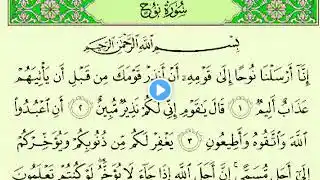 سُورَةُ نُوحٍ
بِسْمِ اللَّهِ الرَّحْمَٰنِ الرَّحِيمِ
إِنَّا أَرْسَلْنَا نُوحًا إِلَىٰ قَوْمِهِ أَنْ أَنذِرْ قَوْمَكَ مِن قَبْلِ أَن يَأْتِيَهُمْ
عَذَابٌ أَلِيمٌ ١ قَالَ يَٰقَوْمِ إِنِّي لَكُمْ نَذِيرٌ مُّبِينٌ ٢ أَنِ اعْبُدُوا
اللَّهَ وَاتَّقُوهُ وَأَطِيعُونِ ٣ يَغْفِرْ لَكُم مِّن ذُنُوبِكُمْ وَيُؤَخِّرْكُمْ
إِلَىٰ أَجَلٍ مُّسَمًّى إِنَّ أَجَلَ اللَّهِ إِذَا جَاءَ لَا يُؤَخَّرُ لَوْ كُنتُمْ تَعْلَمُونَ